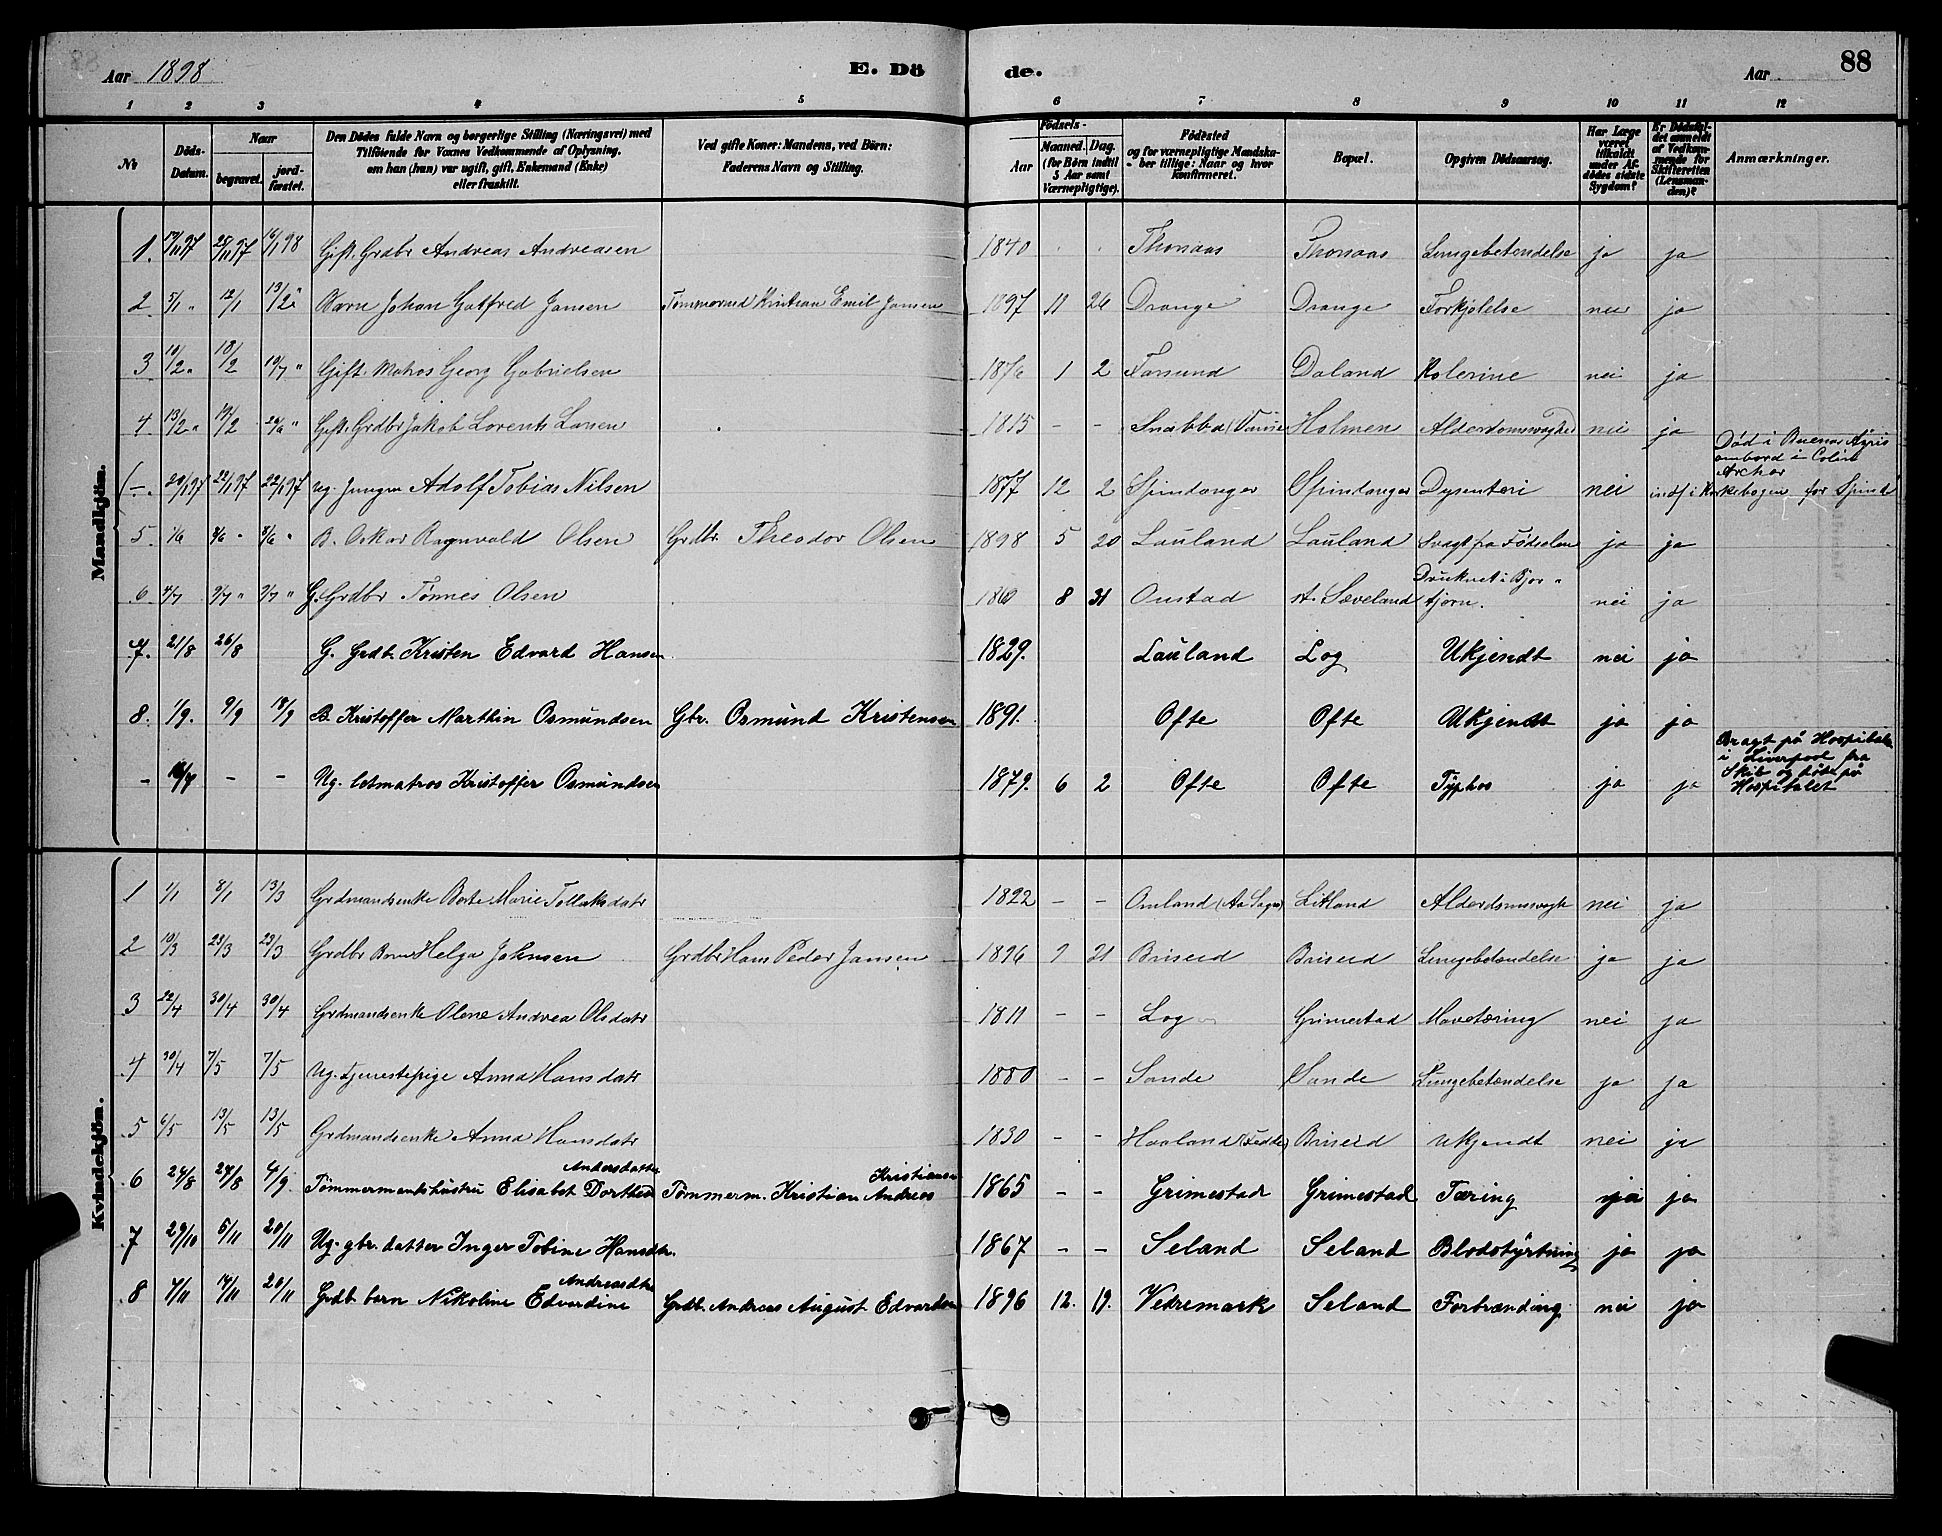 Aar 1898
E. Dö
de.
Aar
88
1 2 3 4 5 6 7 8 9 10 11 12
No
Döds-Datum.
Naar
begravet.
jord-fæstet.
Den Dödes fulde Navn og borgerlige Stilling (Næringsvei) med
Tilföiende for Voxnes Vedkommende af Oplysning,
om han (hun) var ugift, gift, Enkemand (Enke)
eller fraskilt.
Ved gifte Koner: Mandens, ved Börn:
Faderens Navn og Stilling.
Födsels-
Aar
Maaned. Dag.
(for Börn indtil
5 Aar samt
Værnepligtige).
Födested
og for værnepligtige Mandska-
ber tillige: Naar og hvor
konfirmeret.
Bopæl.
Opgiven Dödsaarsag.
Har Læge
været
tilkaldt
under Af-
dödes sidste
Sygdom?
Er Dödsfal-
det anmeldt
af Vedkom-
mende for
Skifteretten
(Lensman-
den)?
Anmærkninger.
Mandkjön.
1. 17/11 97 25/11 97 16/1 98 Gift. Grdbr Andreas Andreasen 1840 Thonaas Thonaas Lungebetendelse ja ja
2 5/1 " 12/1 13/2 " Barn Johan Gotfred Jansen Tømmermd Kristian Emil Jansen 1897 11 26 Drange Drange Forkjølelse nei ja
3 10/2 " 18/2 10/7 " Gift. Matros Georg Gabrielsen 1876 1 2 Farsund Daland Kolerine nei ja
4 13/2 " 19/2 29/6 " Gift. Grdbr Jakob Lorents Larsen 1815 - - Snabba (Vanse Holmen Alderdomsvaghed nei ja
Død i Buenos Ayris
ombord i Colin
Archer
(-. 20/1 97 22/1 97 22/1 97 Ug. Jungm Adolf Tobias Nilsen 1877 12 2 Spindanger Spindanger Dysenteri nei indf i Kirkebogen for Spind
5 1/6 3/6 " 3/6 " B. Oskar Ragnvald Olsen Grdbr. Theodor Olsen 1898 5 20 Lauland Lauland Svagt fra Fødselen ja ja
6. 4/7 9/7 " 9/7 " G. Grdbr Tønnes Olsen 1860 8 31 Onstad st. Sæveland Druknet i Bjor-
tjørn. nei ja
7. 21/8 26/8 G. Grdb. Kristen Edvard Hansen 1829. Lauland Log Ukjendt nei ja
8. 1/9. 9/9 18/9 B. Kristoffer Marthin Osmundsen Gbr. Osmund Kristensen 1891. Ofte Ofte Ukjendt ja ja
Bragt på Hospitalet
i Liverpool fra
Skib og døde på
Hospitalet
- 16/7 - - Ug. Letmatros Kristoffer Osmundsen 1879. 6 2 Ofte Ofte Typhos ja ja
Kvindekjön.
1 1/1 8/1 13/3 Grdmandsenke Berte Marie Tollaksdatr 1822 - - Omland (Aa Sogn) Litland Alderdomsvagh nei ja
2 10/3 23/3 23/3 Grdbr Barn Helga Johnsen Grdbr Hans Peder Jansen 1896 9 21 Briseid Briseid Lungebetændelse ja ja
3 22/4 30/4 30/4 Grdmandsenke Olene Andrea Olsdatr 1811 - - Log Grimestad Mavetæring nei ja
4 30/4 7/5 7/5 Ug. Tjenestepige Anna Hansdatr 1880 - - Sande Sande Lungebetændelse ja ja
5 6/5 13/5 13/5 Grdmandsenke Anna Hansdatr 1830 - - Haaland (Fedde) Briseid Ukjendt nei ja
6 24/8 27/8 4/9. Tømmermandshustru Elisabet Dorthea Andersdatter Tømmerm. Kristian Andreas Kristiansen 1865 - - Grimestad Grimestad Tæring ja ja
7 29/10 5/11 20/11 Ug. gbr. datter Inger Tobine Hansdtr. 1867 - - Seland Seland Blodstyrtning ja ja
8 7/11 14/11 20/11 Grdb. barn Nikoline Edvardine Andreasdtr Grdb. Andreas August Edvardsen 1896 12. 19. Vedremark Seland Forbrænding nei ja